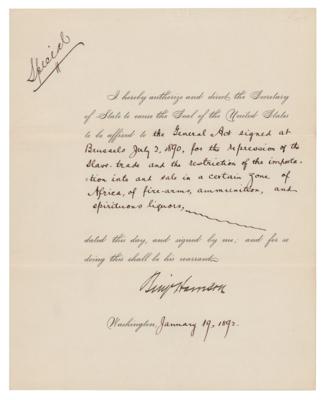 Special
I hereby authorize and direct the Secretary
of State to cause the Seal of the United States
to be affixed to the General Act signed at
Brussels July 2, 1890, for the repression of the
Slave trade and the restriction of the importa-
tion into and sale in a certain zone of
Africa, of fire-arms, ammunition, and
spirituous liquors,
dated this day, and signed by me; and for so
doing this shall be his warrant.
Benj Harrison
Washington, January 19, 1892.